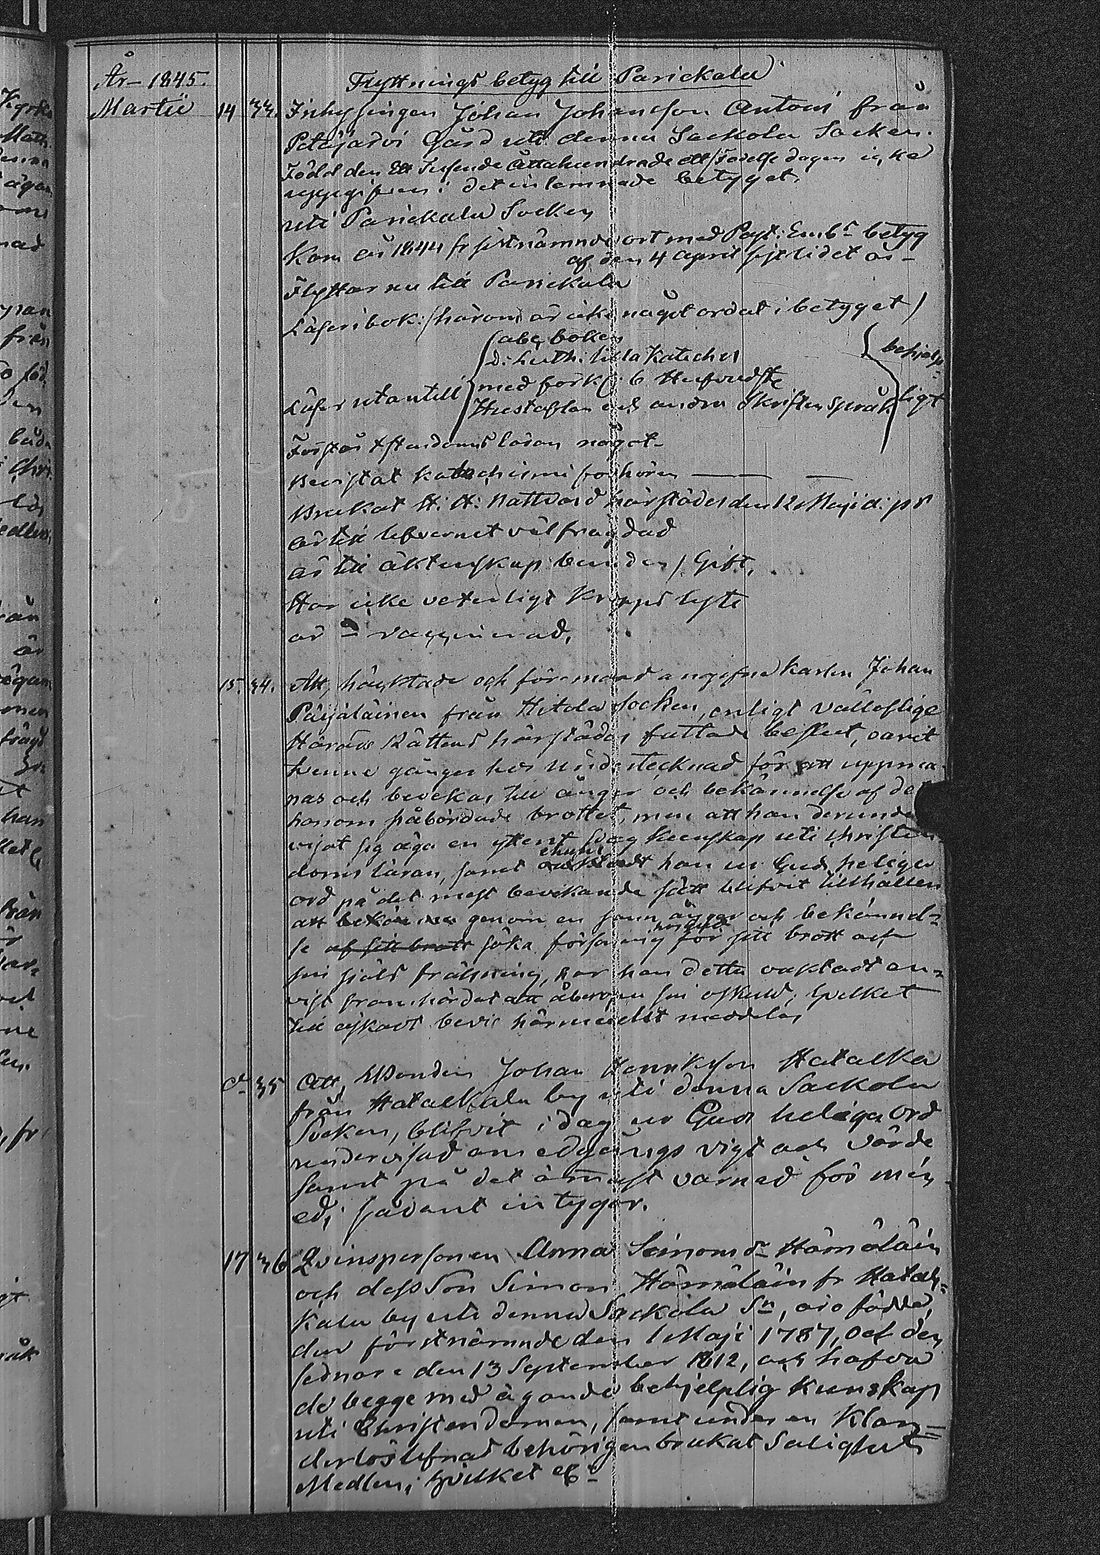 År 1845. Flyttnings betyg till Parickala
Martii 14 33. Inhysingen Johan Johansson Antoni från
Petäjärvi Gård uti denna Sackola Socken.
Född den Ett Tusende Åttahundrade ett/Födelse dagen icke
uppgifven i det inlemnade betyget
uti Parickala Socken
Kom år 1844 fr sistnämnde ort med Past: Emb:s betyg
af den 4 April sistlidet år
Flyttar nu till Parickala
Läser i bok (härom är icke något ordat i betyget)
abc boken
D: Luth: lilla Katches
Läser utantill med förkl: 6 Hufvudste behjelp-
Hustaflan och andra Skriftenes språk ligt
Förstår Christendoms läran något
Bevistat Katechismi förhören
Brukat H. H. Nattvard härstädes den 12 Maji d: år
är till lefvernet välfrägdad
är till äktenskap bunden / Gift,
Har icke veterligt Kropps lyte
är vaccinerad.
15. 34. Att, häcktade och för mord angifne karlen Johan
Pärjäläinen från Hitola Socken, enligt vällofliga
Härads Rättens härstädes fattade beslut, varit
trenne gånger hos undertecknad för att uppma-
nas och bevekas till ånger och bekännelse af det
honom påbördade brottet, men att han derunder
visat sig äga en ytterst svag kunskap uti Christen
doms läran, samt ehuru han ur Guds heliga
ord på det mest bevekande sätt blifvit tillhållen
att genom en sann ånger och bekännel-
se af sitt brott söka försoning för sitt brott och
sin själs frälsning, har han detta oaktadt en-
vist framhärdat att åberopa sin oskuld; hvilket
till äskadt bevis härmedelst meddelas
d:o 35 Att, Bonden Johan Henriksson Hatakka
från Hatakkala by uti denna Sackola
Socken, blifvit i dag ur Guds heliga Ord
undervisad om edgångs vigt och värde
samt på det ömast varnad för men
ed; sådant intygar.
17 36 Qvinspersonen Anna Simonsdr Hämäläin
och dess Son Simon Hämäläin fr Hatak-
kala by uti denna Sackola Sn, äro födde,
den förstnämnde den 1 Maji 1787, och den
sednare den 13 September 1812, och hafva
de begge med ägande behjelplig Kunskap
uti Christendomen, samt under en Klan-
derlös lefnad behörigen brukat Salighets
Medlen; hvilket etc: